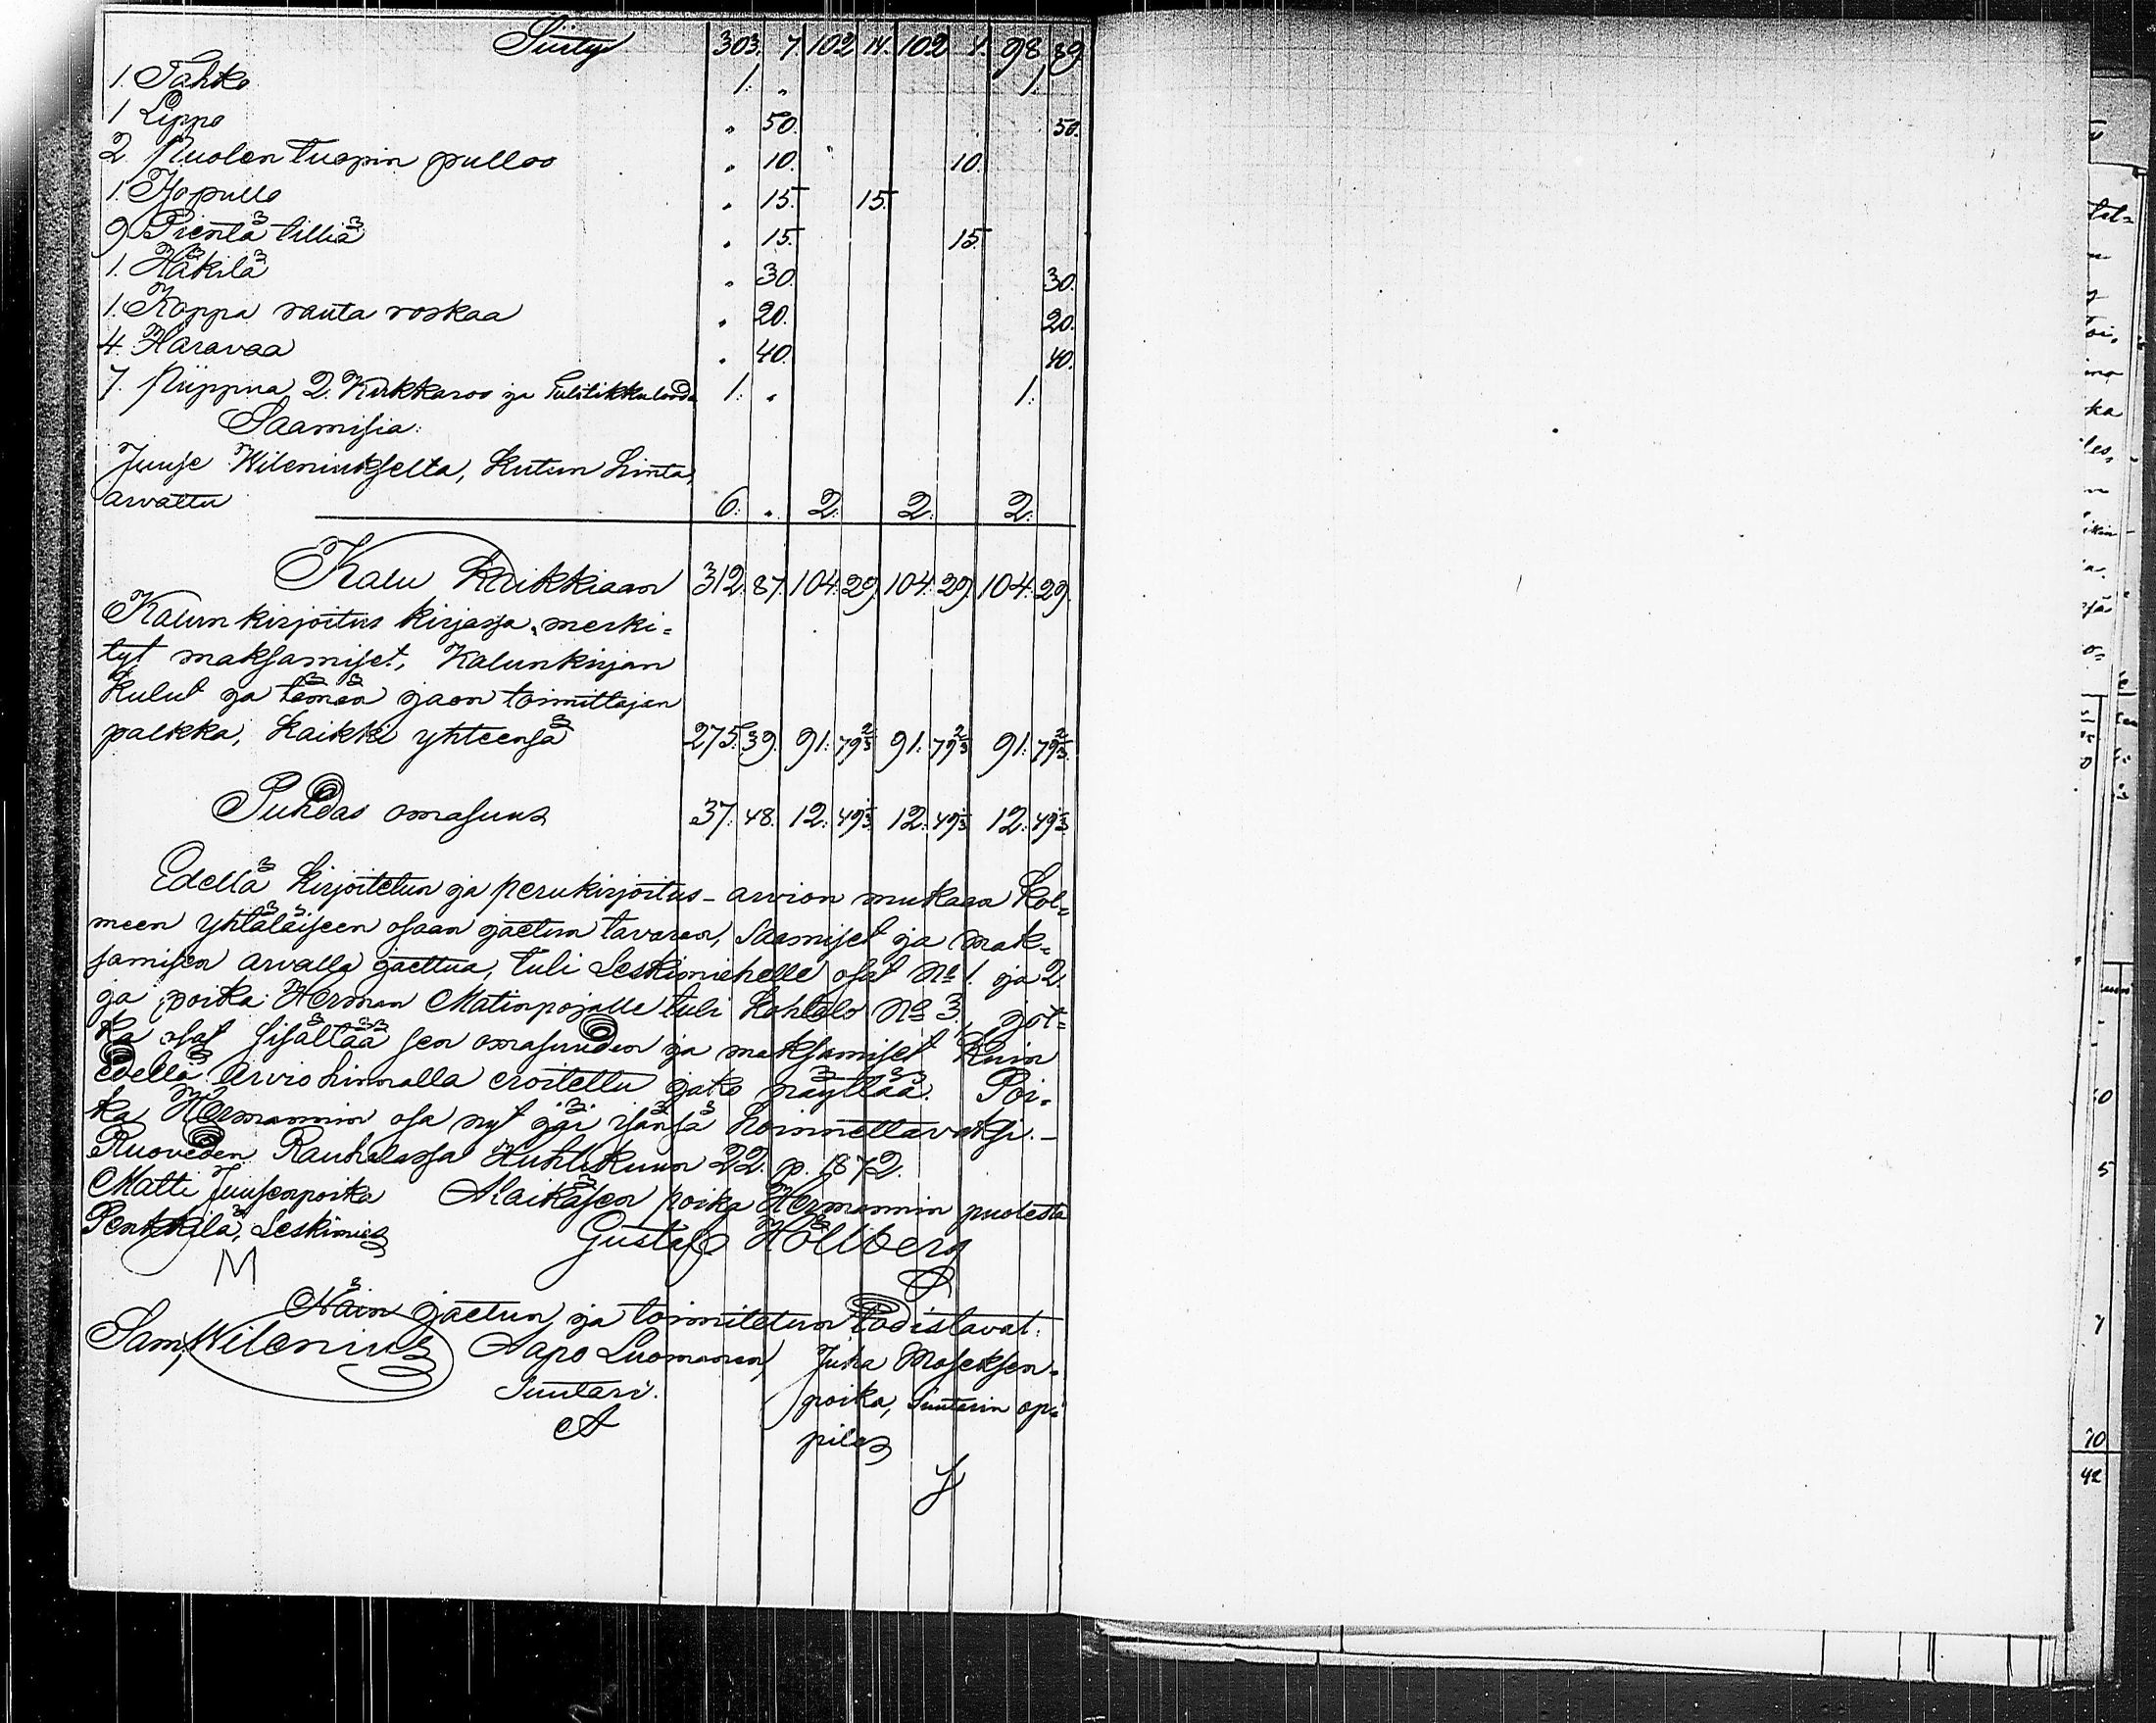 Siirty 303. 7. 102 14. 102 4. 98. 89.
1. Tahko 1. „ 1.
1 Lippo „ 50. 50.
2. Puolen tuopin pulloo „ 10. 10.
1. Isopullo „ 15. 15.
9 Pientä tilliä „ 15. 15.
1. Häkilä „ 30. 30.
1. Koppa rauta roskaa „ 20. 20.
4. Haravaa „ 40. 40.
7. Piippua, 2. Kukkaroo ja Tulitikkulooda 1: „ 1:
Saamisia:
Juuse Wileniukselta, kutun hinta,
arvattu 6: „ 2: 2: 2:
Kalu Kaikkiaan 312. 87. 104. 29. 104. 29. 104. 29.
Kalunkirjoitus kirjassa, merki=
tyt maksamiset, Kalunkirjan
kulut ja tämän jaon toimittajan
palkka, kaikki yhteensä 275. 39. 91: 79 2/3 91: 79 2/3 91: 79 2/3.
Puhdas omasuus 37. 48. 12: 49 1/3 12: 49 1/3 12: 49 1/3
Edellä kirjoitetun ja perukirjoitus-arvion mukaan kol=
meen yhtäläiseen osaan jaetun tavaran, saamiset ja mak=
samisen arvalla jaettua, tuli Leskimiehelle osat No 1. ja 2.
ja poika Herman Matinpojalle tuli kohtalo No 3., jot=
ka osat sisältää sen omasuuden ja maksamiset kuin
edellä arvio hinnalla eroitettu jako näyttää. Poi=
ka Hermannin osa nyt jäi isänsä hoinnettavaksi.-
Ruoveden Rauhalassa Huhtikuun 22. p. 1872.
Matti Juusenpoika Alaikäsen poika Hermannin puolesta
Penkkilä, Leskimies Gustaf Hölberg
M
Näin jaetun ja toimitetun todistavat:
Sam, Wilenius Aapo Luomanen, Juha Moseksen=
Suutari. poika, Suutarin op=
A pilas
J